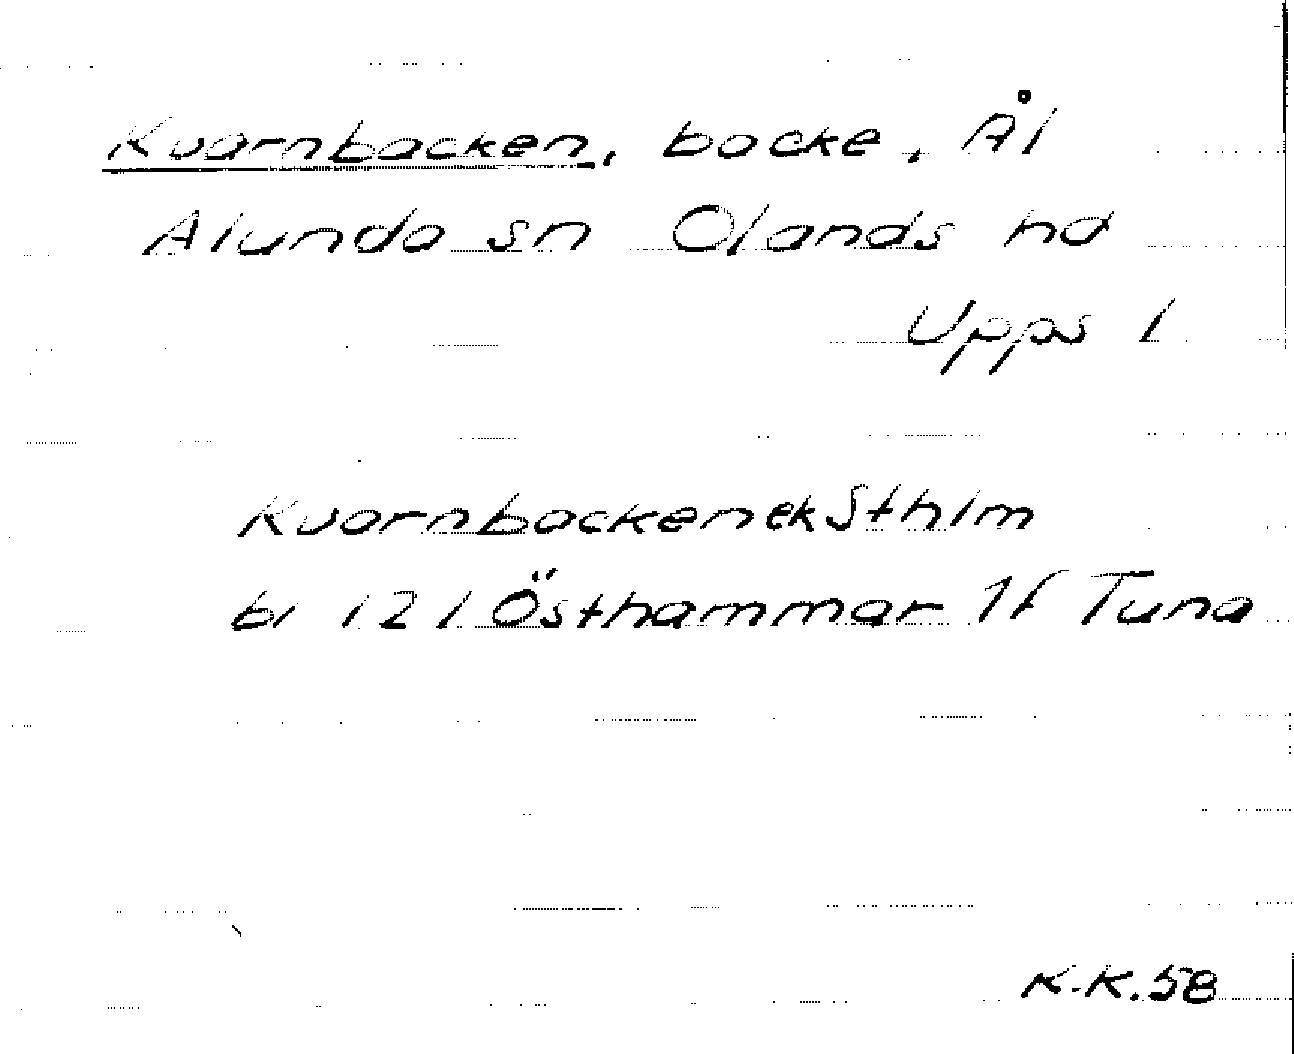 Kvarnbacken, backe, Ål
Alunda sn Olands hd
Upps l
Kvarnbacken ek Sthlm
bl 121 Östhammar 1f Tuna
K-K.58